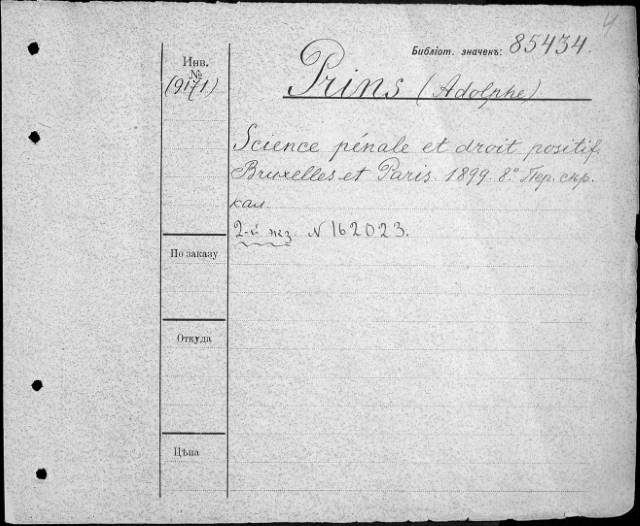 4
Библіот. значекъ: 85434.
Инв.
№
(9171.)
Prins (Adolphe)
Science pénale et droit positif.
Bruxelles et Paris. 1899. 8.° Пер. скр.
кал.
2-й экз. № 162023.
По заказу
Откуда
Цѣна